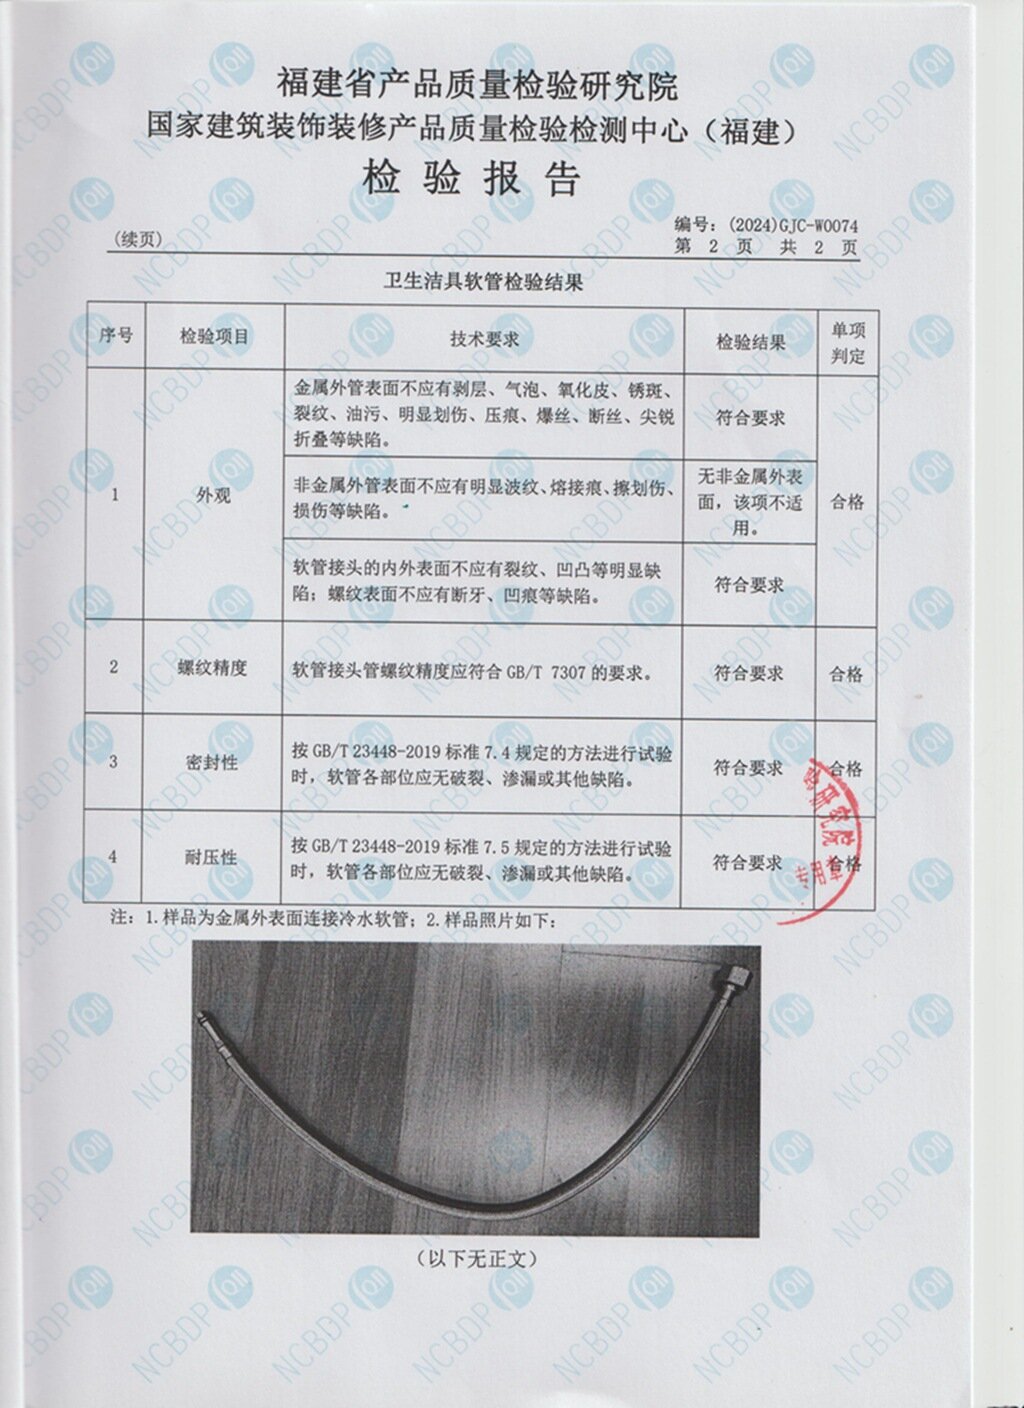 福建省产品质量检验研究院
国家建筑装饰装修产品质量检验检测中心（福建）
检验报告
编号：(2024)GJC-W0074
（续页）
第 2 页 共 2 页
卫生洁具软管检验结果
序号 检验项目 技术要求 检验结果 单项
判定
1 外观
金属外管表面不应有剥层、气泡、氧化皮、锈斑、
裂纹、油污、明显划伤、压痕、爆丝、断丝、尖锐
折叠等缺陷。
符合要求
非金属外管表面不应有明显波纹、熔接痕、擦划伤、
损伤等缺陷。
无非金属外表
面，该项不适
用。
合格
软管接头的内外表面不应有裂纹、凹凸等明显缺
陷；螺纹表面不应有断牙、凹痕等缺陷。
符合要求
2 螺纹精度 软管接头管螺纹精度应符合 GB/T 7307 的要求。 符合要求 合格
3 密封性
按 GB/T 23448-2019 标准 7.4 规定的方法进行试验
时，软管各部位应无破裂、渗漏或其他缺陷。
符合要求 合格
4 耐压性
按 GB/T 23448-2019 标准 7.5 规定的方法进行试验
时，软管各部位应无破裂、渗漏或其他缺陷。
符合要求 合格
注：1.样品为金属外表面连接冷水软管；2.样品照片如下：
（以下无正文）
验研究院
专用章
NCBDP